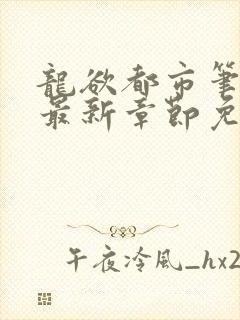 龍欲都市筆
最新章節免
午夜冷風_hx2